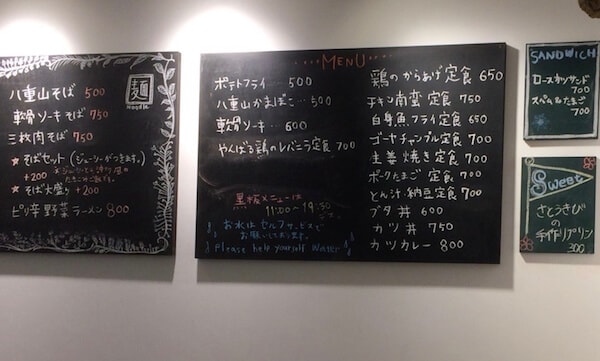 麺
Noodle
八重山そば 500
軟骨ソーキそば 750
三枚肉そば 750
★そばセット(ジューシーがつきます。)
+200
★そば大盛り +200
ピリ辛野菜ラーメン 800
MENU
ポテトフライ 500
八重山かまぼこ… 500
軟骨ソーキ… 600
やんばる鶏のレバニラ定食 700
黒板メニューは
11:00〜19:30
お水は、セルフサービスで
お願いしております。
Please help yourself Water
鶏のからあげ定食 650
チキン南蛮定食 750
白身魚フライ定食 650
ゴーヤチャンプル定食 700
生姜焼き定食 700
ポークたまご定食 700
とん汁・納豆定食 700
ブタ丼 600
カツ丼 750
カツカレー 800
SANDWICH
ロースカツサンド
700
スパム&たまご
700
Sweet
さとうきびの
手作りプリン
300